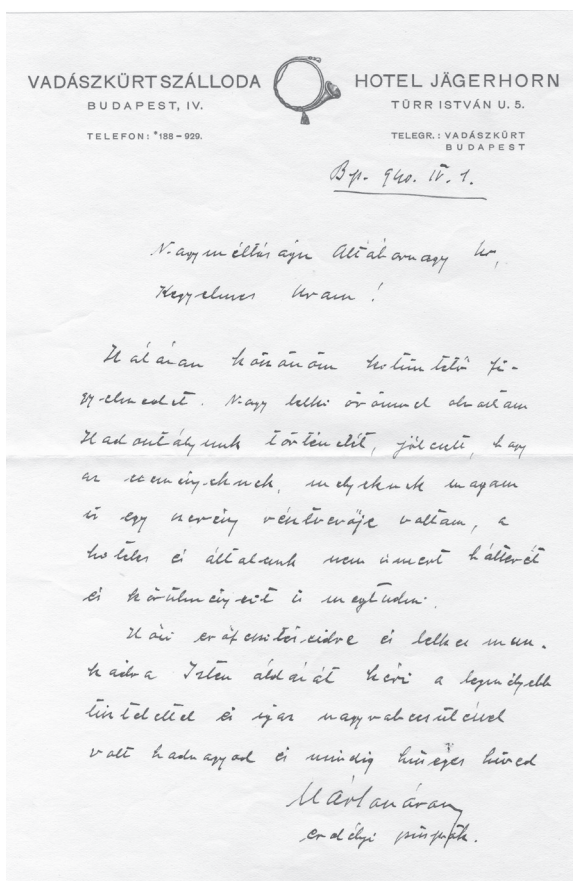 VADÁSZKÜRT SZÁLLODA
BUDAPEST, IV.
TELEFON: *188-929.
HOTEL JÄGERHORN
TÜRR ISTVÁN U. 5.
TELEGR.: VADÁSZKÜRT
BUDAPEST
Bp. 940. IV. 1.
Nagyméltóságu Altábornagy Ur,
Kegyelmes Uram!
Hálásan köszönöm kitüntető fi-
gyelmedet. Nagy lelki örömmel olvastam
Hadosztályunk történetét, jólesett, hogy
az eseményeknek, melyeknek magam
is egy szerény résztvevője voltam, a
hiteles és általunk nem ismert hátterét
és körülményeit is megtudni.
Hősi erőfeszítéseidre és lelkes mun-
kádra Isten áldását kéri a legmélyebb
tisztelettel és igaz nagyrabecsüléssel
volt hadnagyod és mindig hűséges híved
Márton Áron
erdélyi püspök.